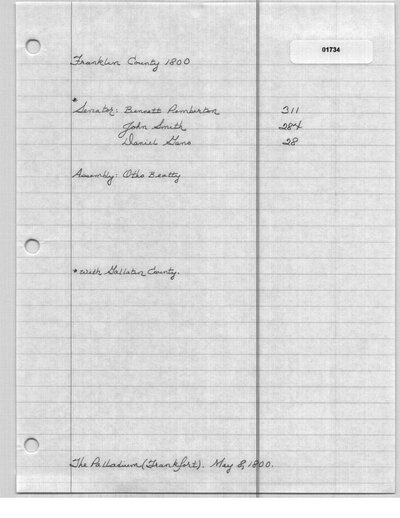 01734
Franklin County 1800
*
Senator: Bennett Pemberton 311
John Smith 284
Daniel Gano 28
Assembly: Otho Beatty
* with Gallatin County.
The Palladium (Frankfort). May 8, 1800.